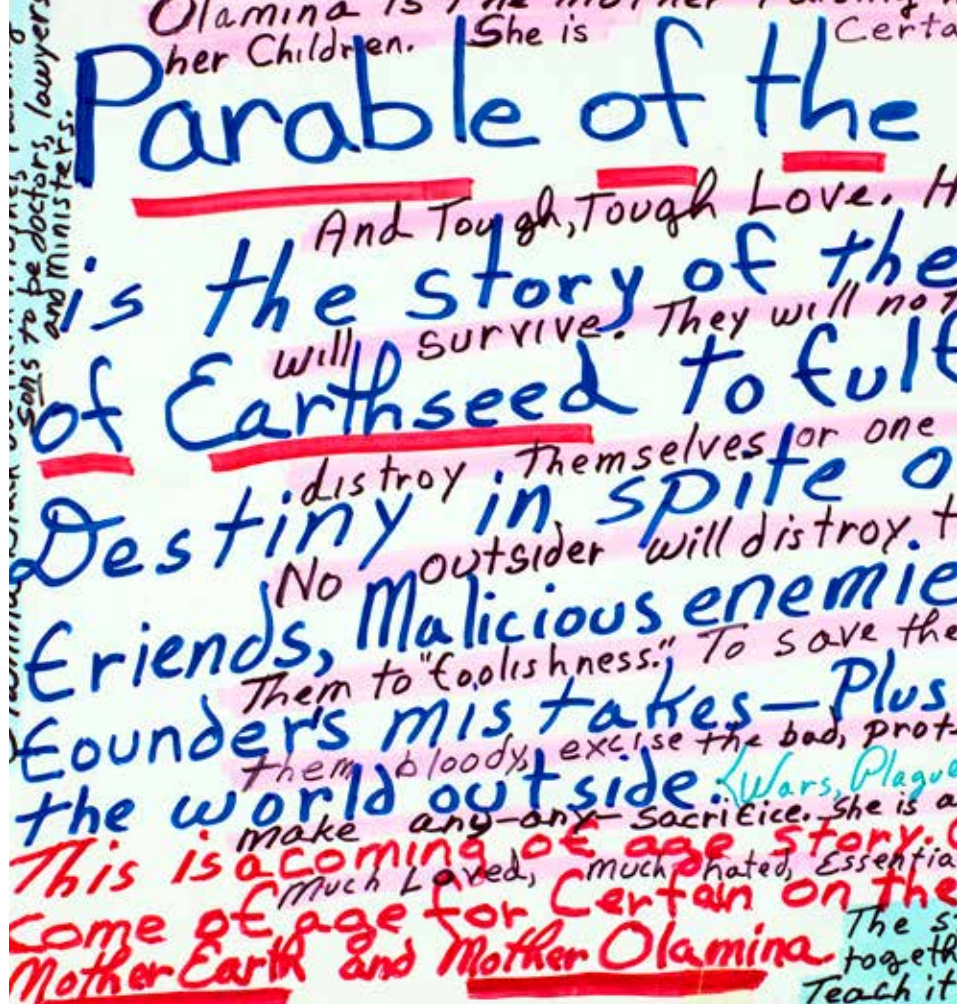 Olamina is The mother
her Children. She is Certa
Parable of the
And Tough, Tough Love. H
is the story of the
will survive. They will not
of Earthseed to fulf
distroy themselves or one
Destiny in spite o
No outsider will distroy t
friends, Malicious enemie
Them to "foolishness." To save the
founder's mistakes—Plus
them bloody, excise the bad, prot-
the world outside. {Wars, Plague
make any—any— sacrifice. She is a
This is a coming of age story.
Much Loved, much hated, Essentia
come of age for Certan on the
Mother Earth and Mother Olamina
The s
togeth
Teach it
sons to be doctors, lawyers
and ministers.